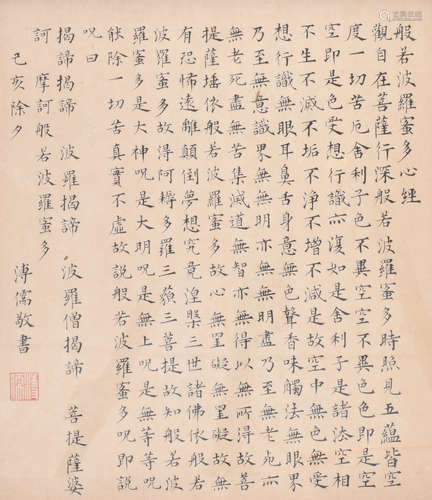 般若波羅蜜多心經
觀自在菩薩行深般若波羅蜜多時照見五蘊皆空
度一切苦厄舍利子色不異空空不異色色即是空
空即是色受想行識亦復如是舍利子是諸法空相
不生不滅不垢不淨不增不減是故空中無色無受
想行識無眼耳鼻舌身意無色聲香味觸法無眼界
乃至無意識界無無明亦無無明盡乃至無老死亦
無老死盡無苦集滅道無智亦無得以無所得故菩
提薩埵依般若波羅蜜多故心無罣礙無罣礙故無
有恐怖遠離顛倒夢想究竟涅槃三世諸佛依般若
波羅蜜多故得阿耨多羅三藐三菩提故知般若波
羅蜜多是大神呪是大明呪是無上呪是無等等呪
能除一切苦真實不虛故說般若波羅蜜多呪即說
呪曰
揭諦揭諦 波羅揭諦 波羅僧揭諦 菩提薩婆
訶 摩訶般若波羅蜜多
己亥除夕 溥儒敬書